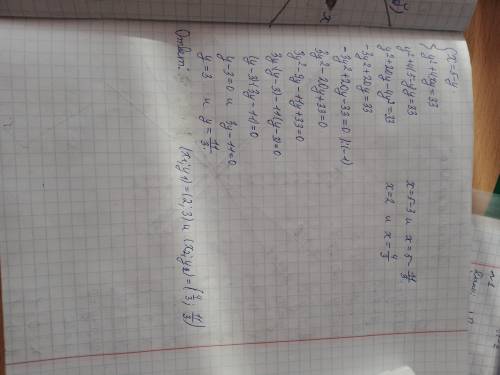 x=5-y
y²+4xy=33
y²+4(5-y)y=33
y²+20y-4y²=33
-3y²+20y=33
-3y²+20y-33=0 |·(-1)
3y²-20y+33=0
3y²-9y-11y+33=0
3y(y-3)-11(y-3)=0
(y-3)(3y-11)=0
y-3=0 и 3y-11=0
y=3 и y=11/3
x=5-3 и x=5-11/3
x=2 и x=4/3
Ответ: (x₁;y₁)=(2;3) и (x₂;y₂)=(4/3;11/3)
x